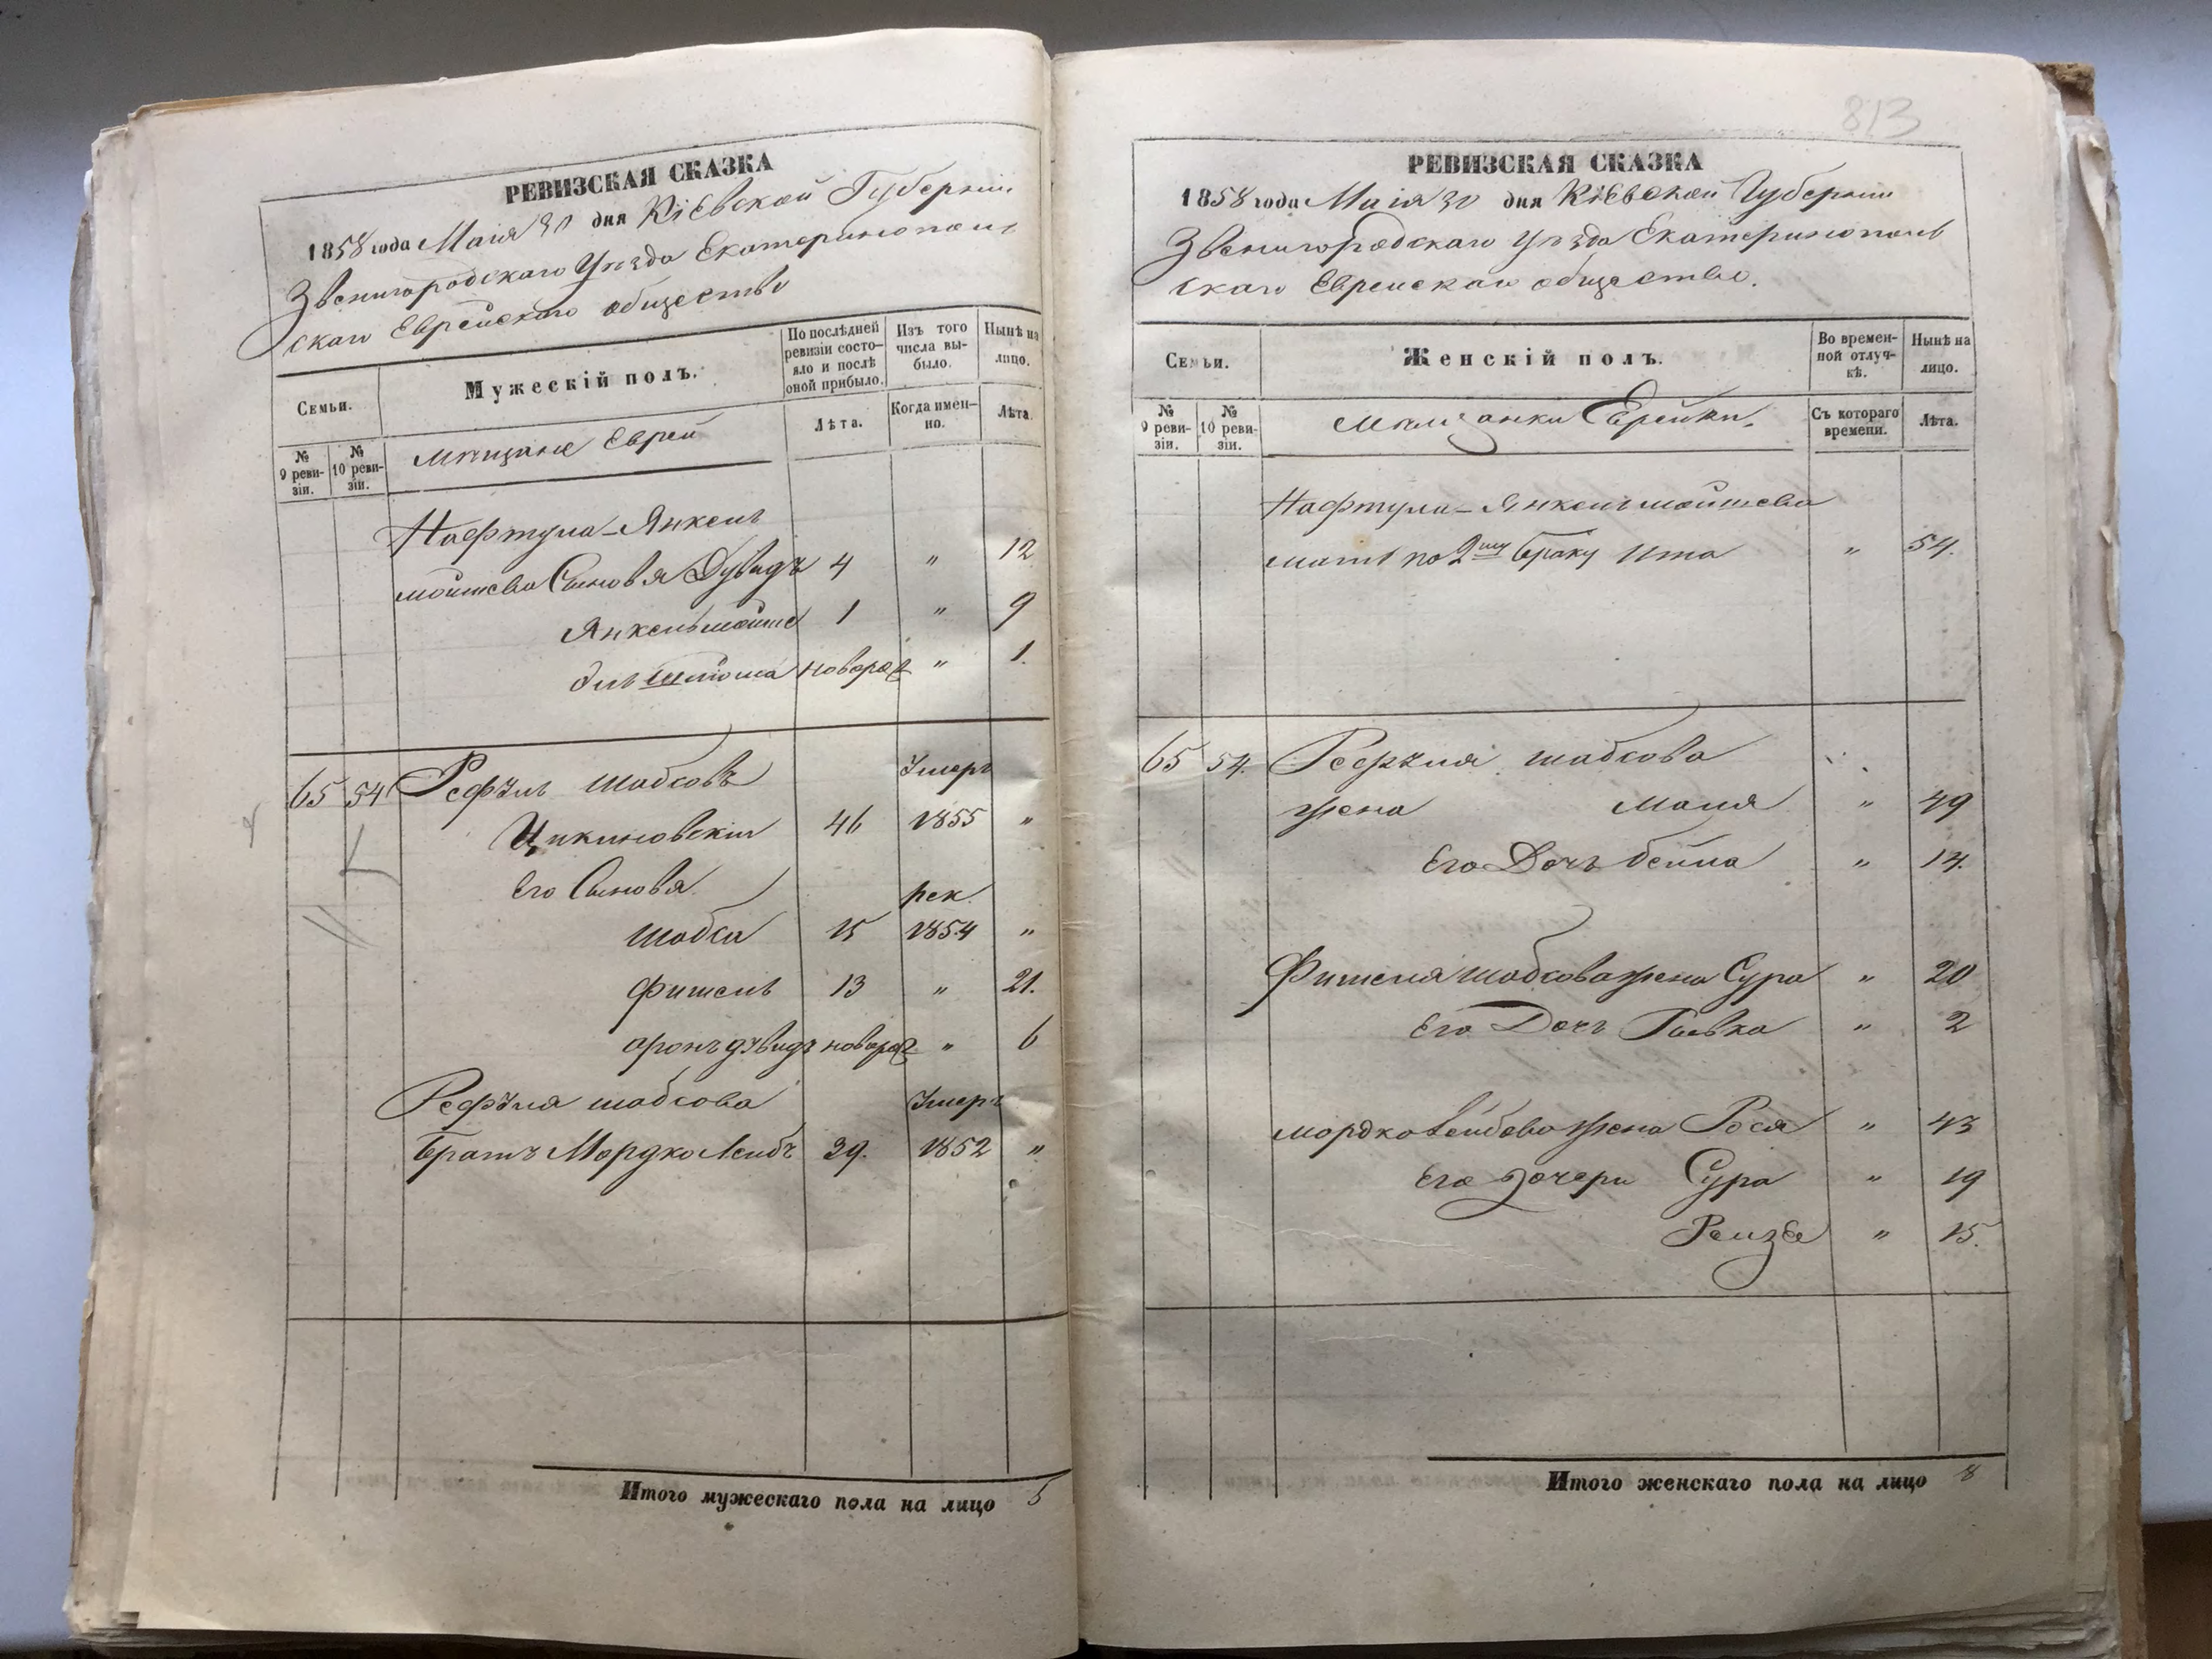 РЕВИЗСКАЯ СКАЗКА
1858 года Маія 30 дня Кіевской Губерніи
Звенигородскаго Уѣзда Екатеринополь
скаго Еврейскаго общества
Семьи.
Мужескій полъ.
По послѣдней ревизіи состо-
яло и послѣ оной прибыло.
Изъ того числа вы-
было.
Нынѣ на лицо.
№ 9 реви-
зіи.
№ 10 реви-
зіи.
Мѣщане Евреи
Лѣта.
Когда имен-
но.
Лѣта.
Нафтула-Янкель
мойшева Сыновя Дувидъ 4 " 12
Янкельмойше 1 " 9
Эль шлёма новорож " 1.
65 54 Рефулъ Шабсовъ Умеръ
Цикиновскій 46 1855 "
Его Сыновя рек.
Шабса 15 1854 "
Фишель 13 " 21.
Аронъ дувидъ новорож " 6
Рефуля шабсова Умеръ
Братъ Мордко Лейбъ 39. 1852 "
Итого мужескаго пола на лицо 5
813
РЕВИЗСКАЯ СКАЗКА
1858 года Маія 30 дня Кіевской Губерніи
Звенигородскаго Уѣзда Екатеринополь
скаго Еврейскаго общества.
Семьи.
Женскій полъ.
Во времен-
ной отлуч-
кѣ.
Нынѣ на лицо.
№ 9 реви-
зіи.
№ 10 реви-
зіи.
Мѣщанки Еврейки.
Съ котораго времени.
Лѣта.
Нафтула-Янкельмойшева
мать по 2му браку Ита " 54.
65 54. Рефуля шабсова
жена Маля " 49
Его Дочь бейла " 14.
Фишеля шабсова жена Сура " 20
Его Дочь Ривка " 2
мордколейбова жена Рося " 43
Его дочери Сура " 19
Рейзе " 15.
Итого женскаго пола на лицо 8